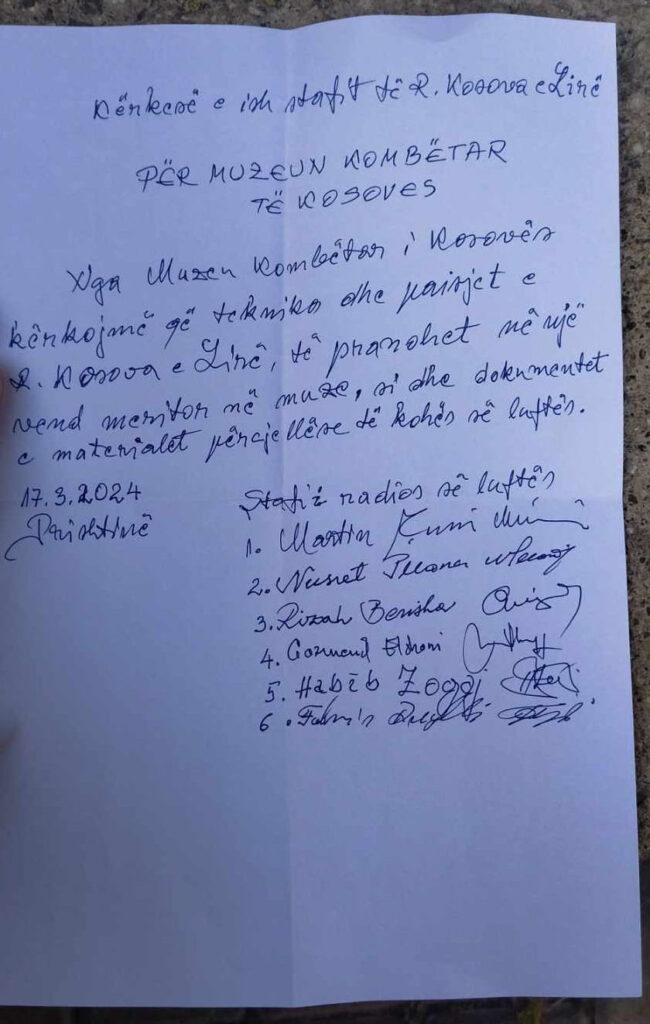 Kërkesë e ish stafit të R. Kosova e Lirë
PËR MUZEUN KOMBËTAR
TË KOSOVES
Nga Muzeu Kombëtar i Kosovës
kërkojmë që teknika dhe paisjet e
R. Kosova e Lirë, të pranohet në një
vend meritor në muze, si dhe dokumentet
e materialet përcjellëse të kohës së luftës.
17.3.2024
Prishtinë
Stafi i radios së luftës
1. Martin
2. Nusret
3. Rizah Berisha
4.
5. Habib Zogaj
6.